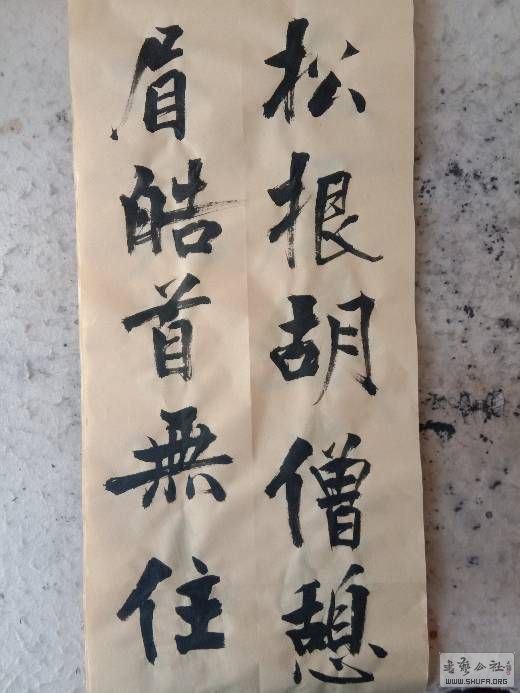 松根胡僧憩
眉皓首無住
书艺公社
WWW.SHUFA.ORG